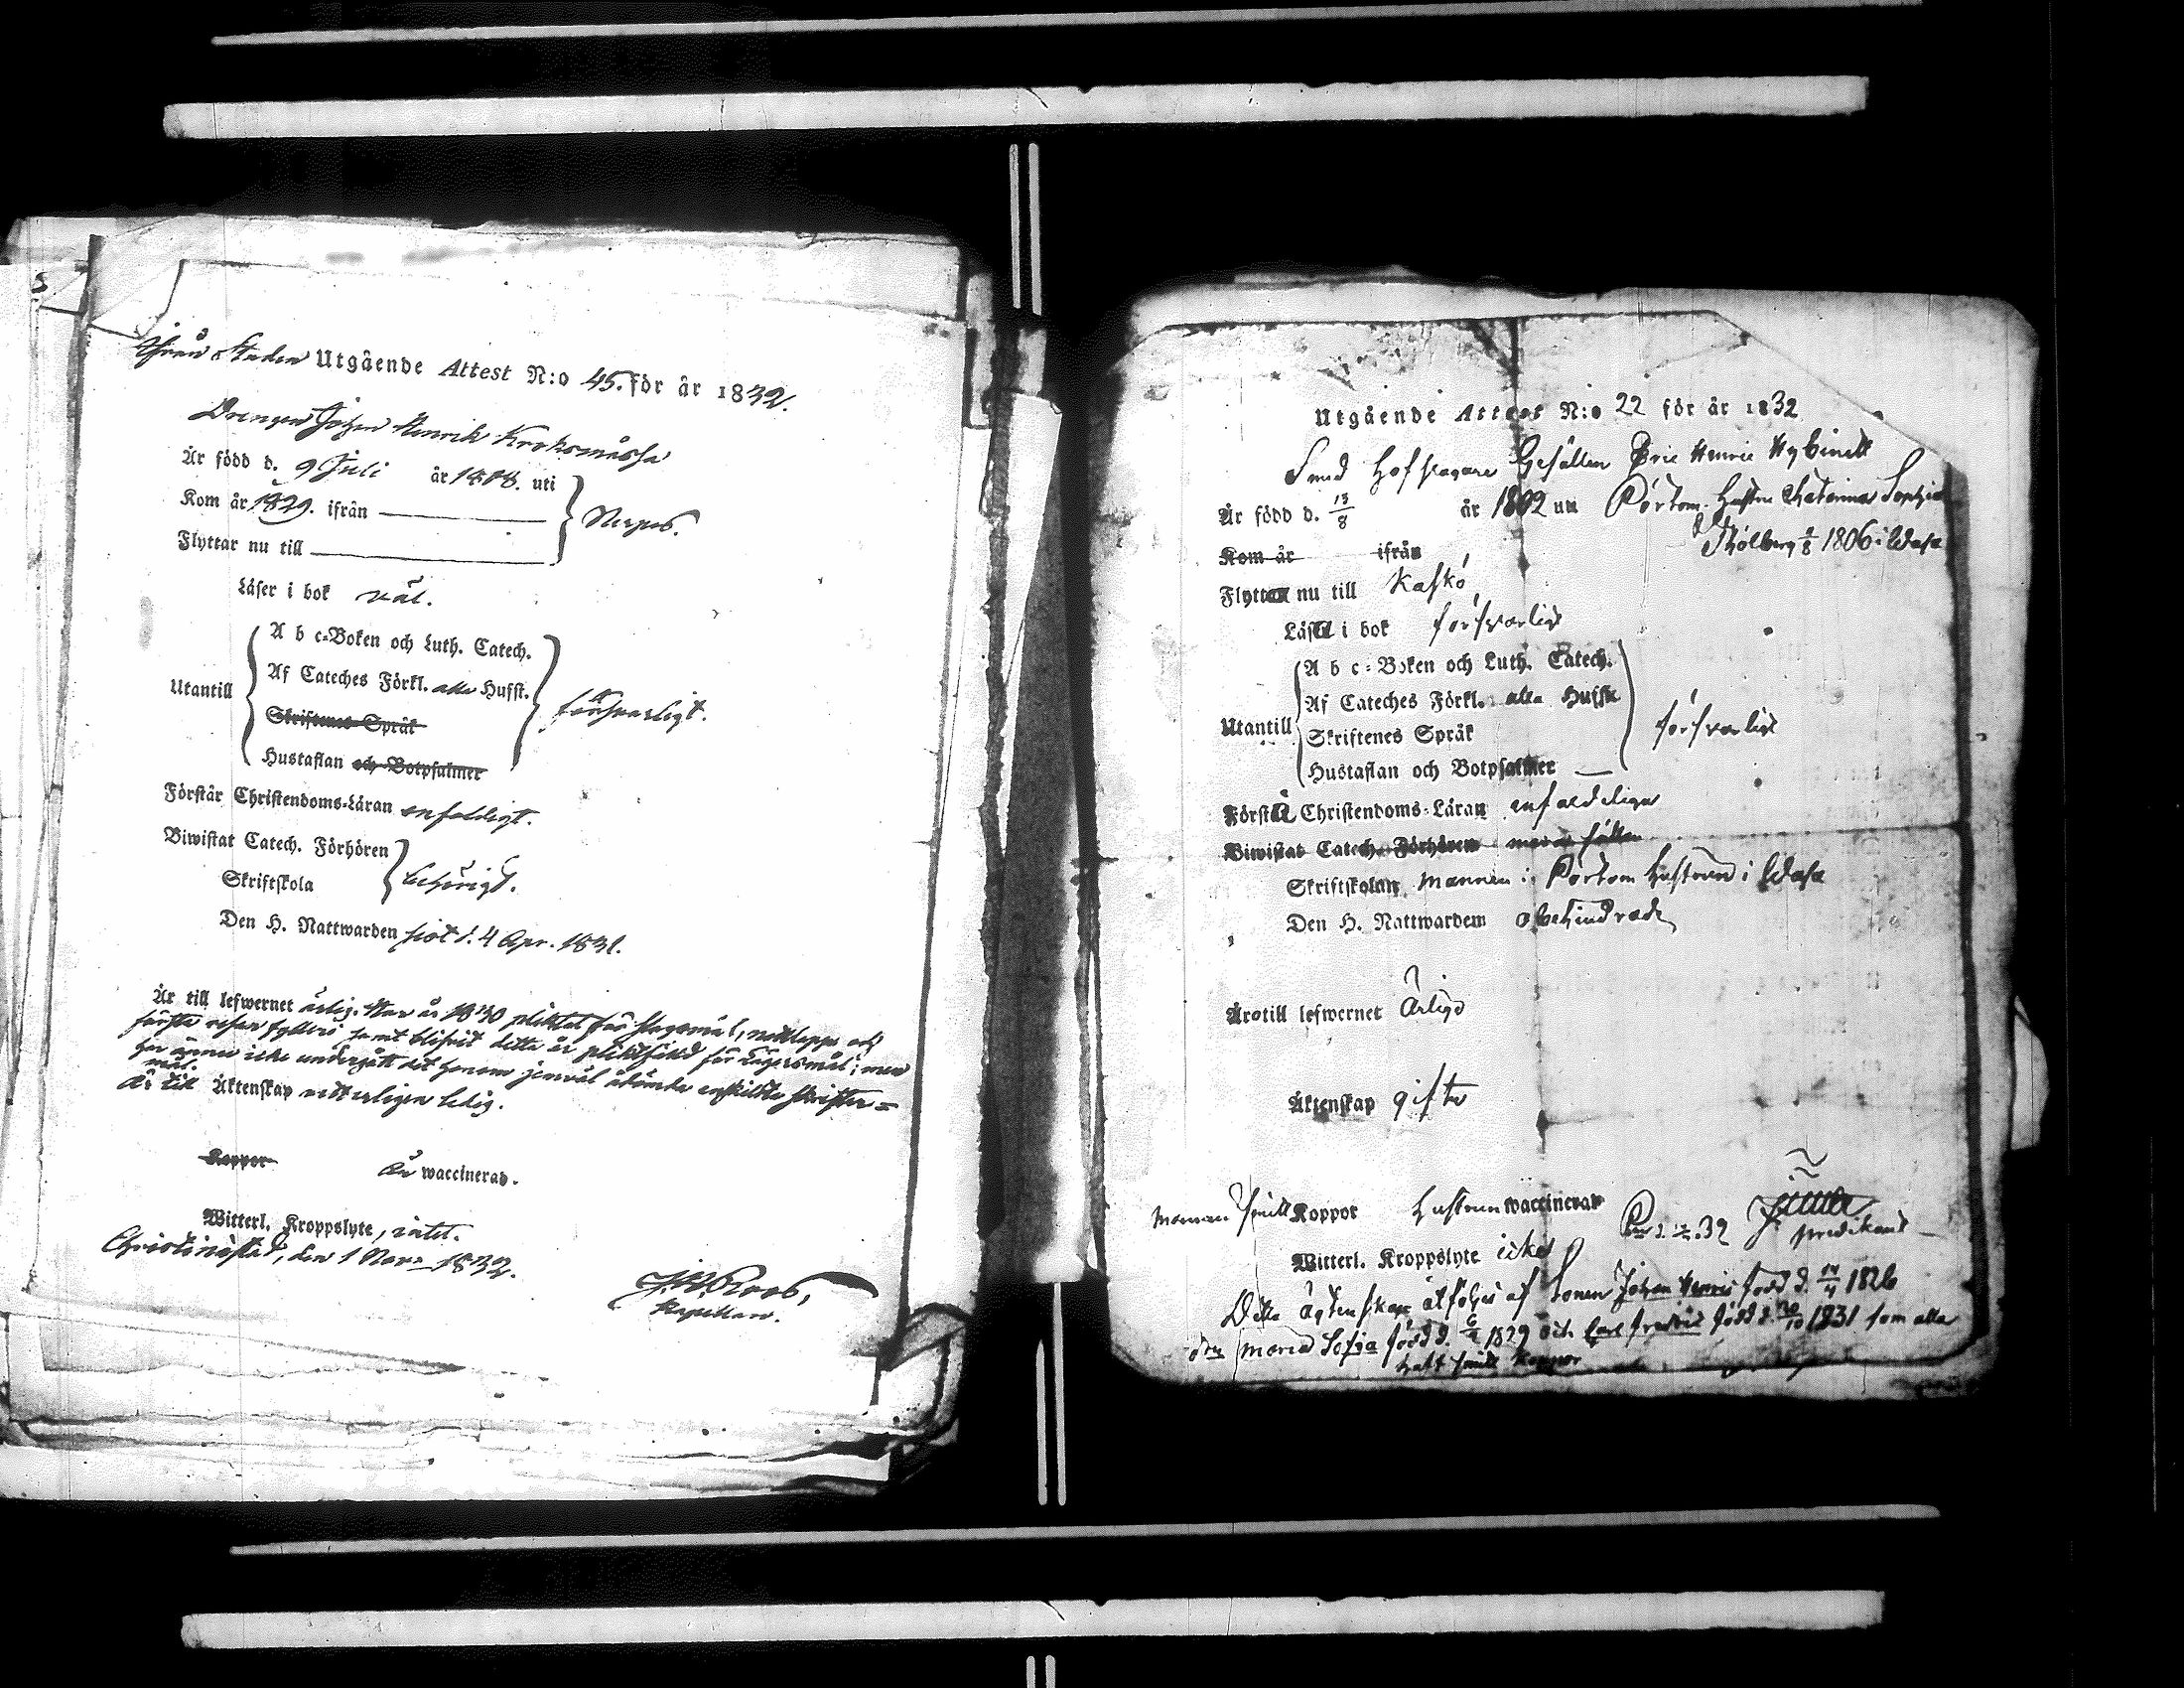 Ifrån Staden Utgående Attest N:o 45. för år 1832.
Drengen Johan Henrik Kroksmässa
Är född d. 9 Juli år 1808. uti
Kom år 1829. ifrån
Nerpes.
Flyttar nu till
Läser i bok väl.
A b c-Boken och Luth. Catech.
Af Cateches Förkl. alla Hufst.
Utantill
försvarligt.
Skriftenes Språk
Hustaflan och Botpsalmer
Förstår Christendoms-Läran enfaldigt.
Biwistat Catech. Förhören
behörigt.
Skriftskola
Den H. Nattwarden sist d. 4 Apr. 1831.
Är till lefwernet ärlig. Har år 1830 pliktat för slagsmål, och
första resan fylleri samt blifvit detta år pliktfäld för Lägersmål; men
har ännu icke undergått det honom jemväl ådömda enskildta skrifter=
mål.
Är till Äktenskap vitterligen ledig.
Koppor Är waccinerad.
Witterl. Kroppslyte, intet.
Christinestad, den 1 Nov. 1832.
Roos,
Kapellan.
Utgående Attest N:o 22 för år 1832
Smed Hofslagare Gesällen Eric Henric Nybinett
Är född d. 13/8 år 1802 uti Pörtom. Hustru Catarina Sophia
1806 i Wasa
Kom år ifrån
Flytta nu till Kaskö
Läsa i bok försvarligt
A b c-Boken och Luth. Catech.
Af Cateches Förkl. alla Hufst
Utantill
försvarligt
Skriftenes Språk
Hustaflan och Botpsalmer
Förstå Christendoms-Läran enfaldeligen
Biwistat Catech. Förhören
Skriftskolan mannen i Pörtom Hustrun i Wasa
Den H. Nattwarden obehindrade
Äro till lefwernet Ärliga
Äktenskap gifta
Mannen haft Koppor Hustrun waccinerad
32 predikant
Witterl. Kroppslyte icke
Detta ägtenskap åtföljes af Sonen Johan Henric född d. 14/4 1826
dr Maria Sofia född d. 1829 och Carl Fredric född d. 20/10 1831 som alla
haft Koppor